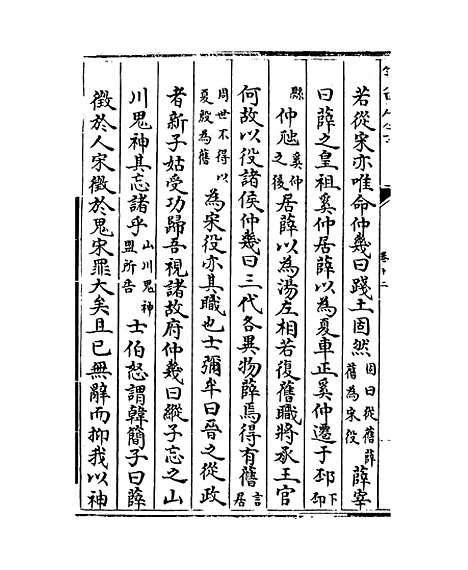 若從宋亦唯命仲幾曰踐土固然因曰從舊薛舊為宋役薛宰
曰薛之皇祖奚仲居薛以為夏車正奚仲遷于邳下邳
縣仲虺奚仲之後居薛以為湯左相若復舊職將承王官
何故以役諸侯仲幾曰三代各異物薛焉得有舊言居
周世不得以夏殷為舊為宋役亦其職也士彌牟曰晉之從政
者新子姑受功歸吾視諸故府仲幾曰縱子忘之山
川鬼神其忘諸乎山川鬼神盟所告士伯怒謂韓簡子曰薛
徵於人宋徵於鬼宋罪大矣且已無辭而抑我以神